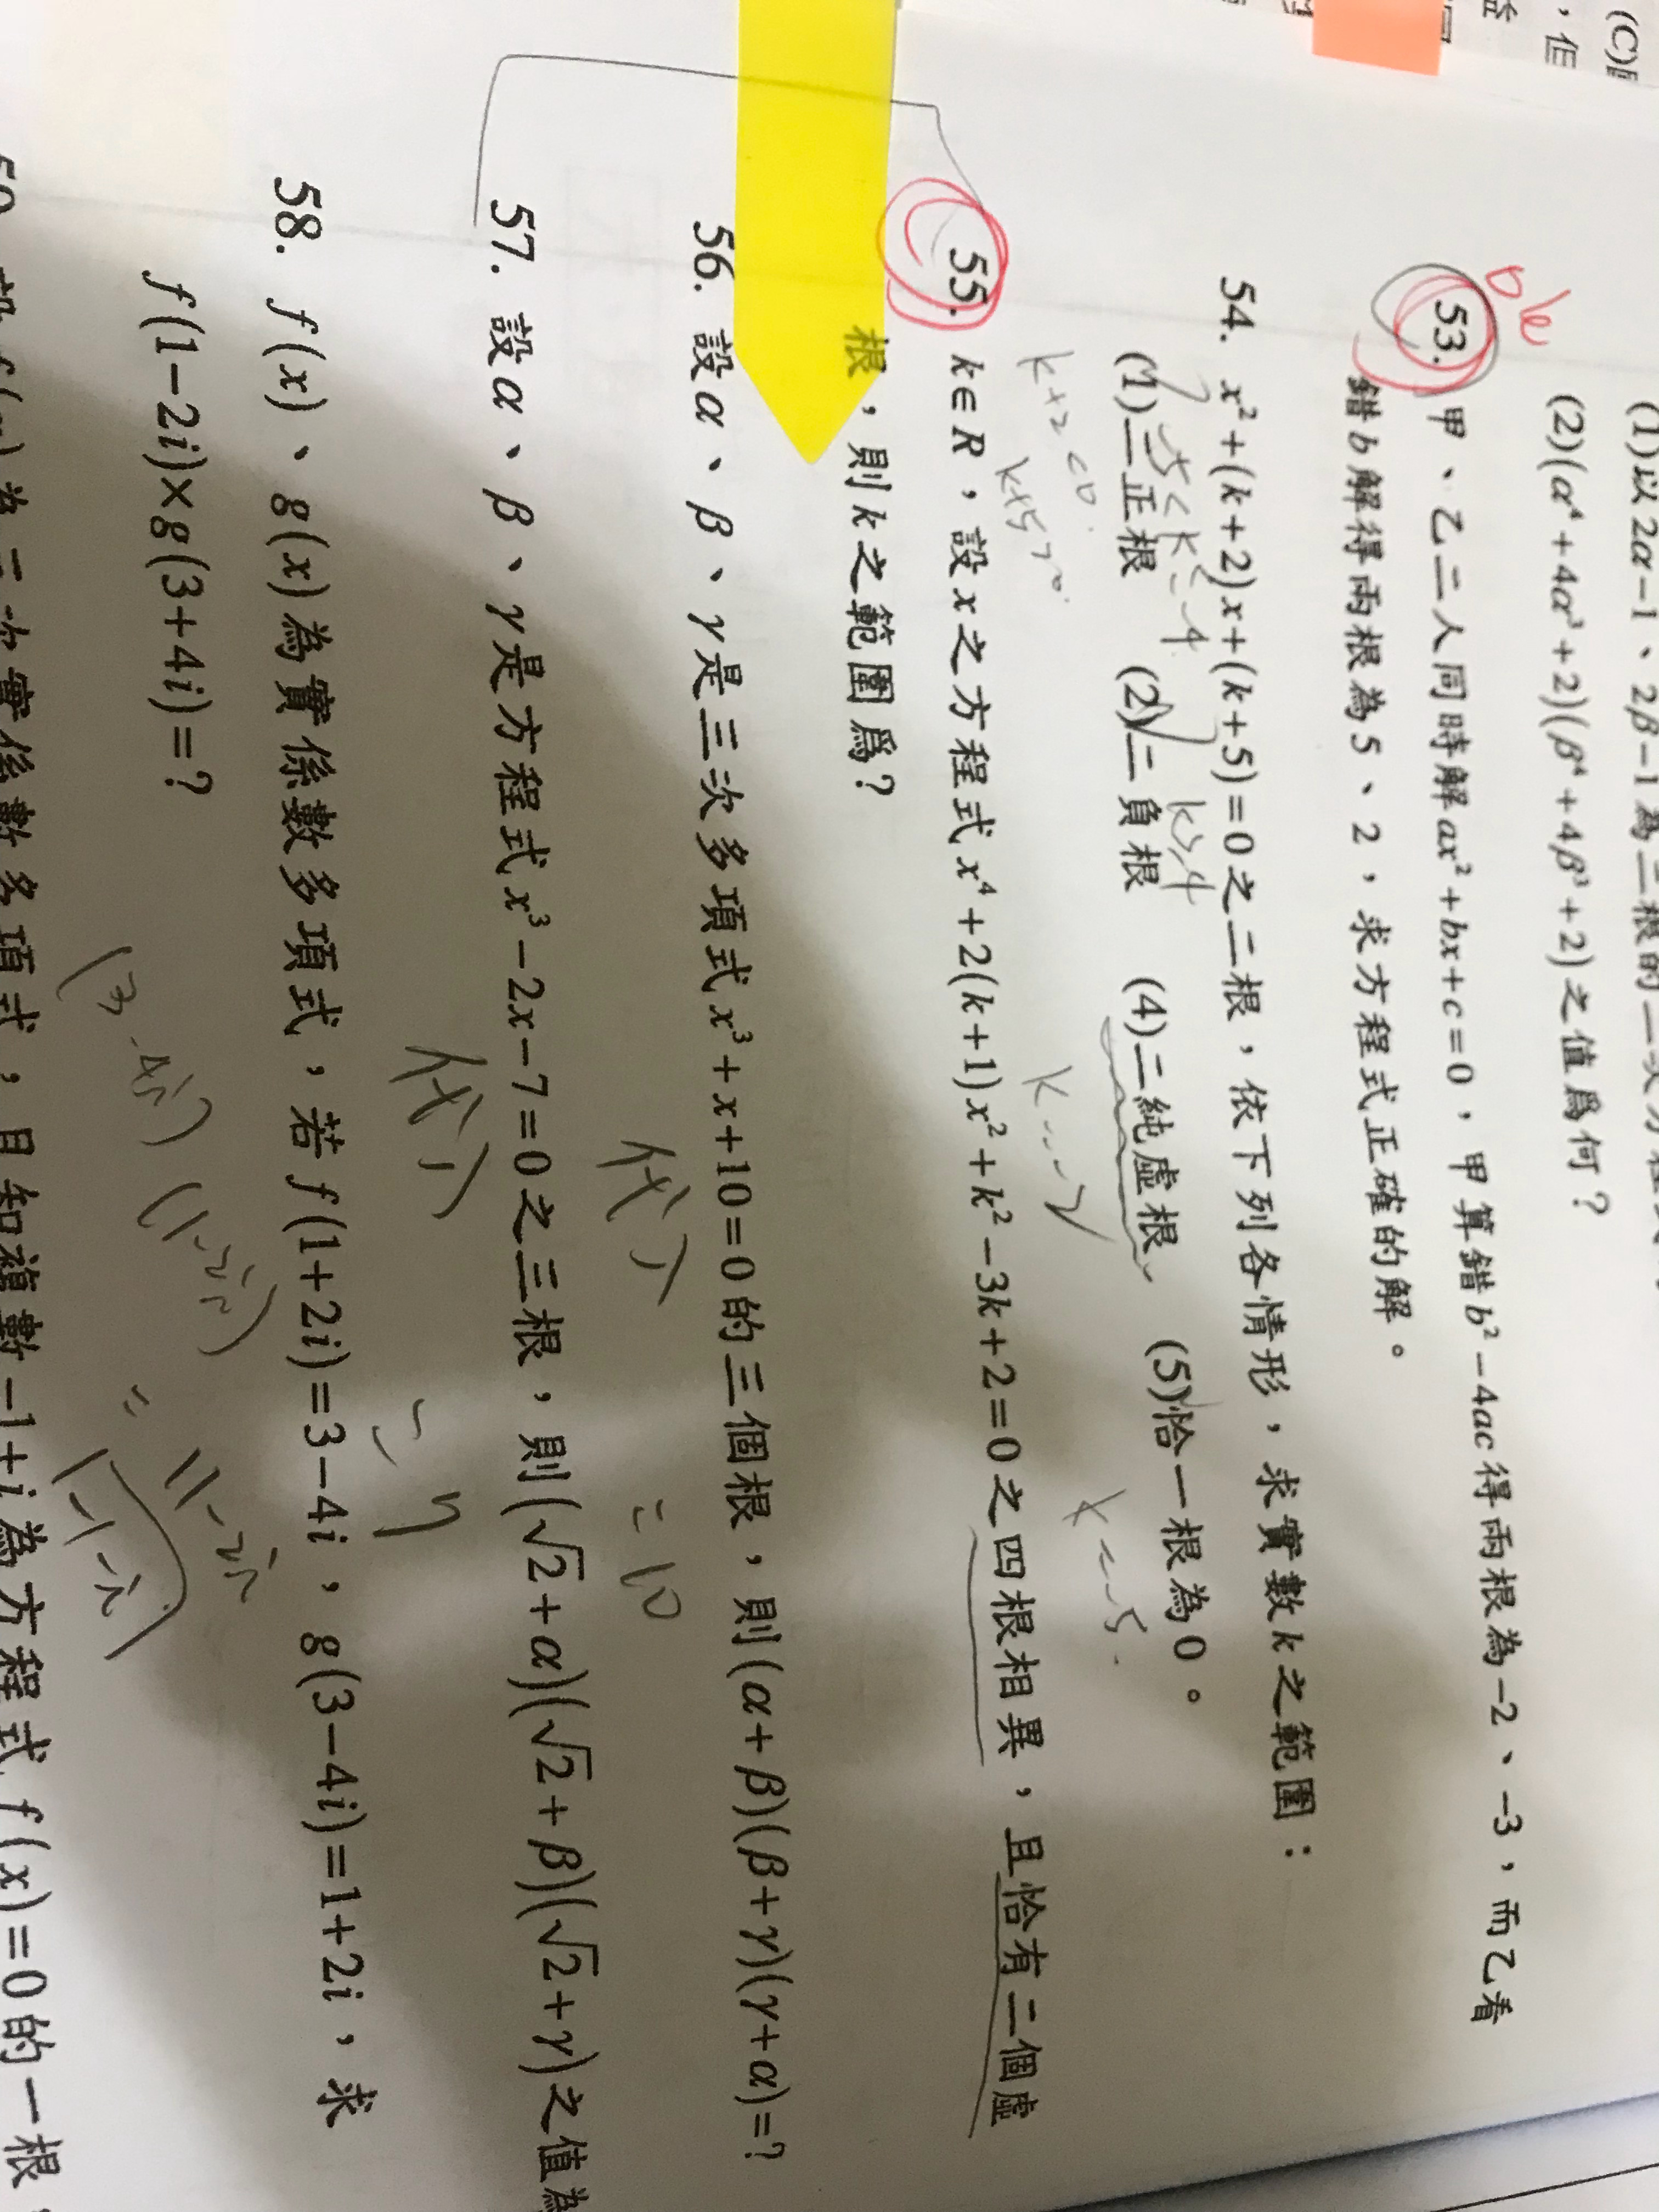 (C)
，但
益
(1)以2α−1、2β−1為二根的二次方程式
(2)(α⁴+4α³+2)(β⁴+4β³+2)之值為何？
ok
53. 甲、乙二人同時解ax²+bx+c=0，甲算錯b²−4ac得兩根為−2、−3，而乙看
錯b解得兩根為5、2，求方程式正確的解。
54. x²+(k+2)x+(k+5)=0之二根，依下列各情形，求實數k之範圍：
-5<k≤-4
k≥4
(1)二正根 (2)二負根 (4)二純虛根 (5)恰一根為0。
k+2<0
k+5>0
k=-2
k=-5
55. k∈R，設x之方程式x⁴+2(k+1)x²+k²−3k+2=0之四根相異，且恰有二個虛
根，則k之範圍為？
56. 設α、β、γ是三次多項式x³+x+10=0的三個根，則(α+β)(β+γ)(γ+α)=?
代入
=10
57. 設α、β、γ是方程式x³−2x−7=0之三根，則(√2+α)(√2+β)(√2+γ)之值為
代入
58. f(x)、g(x)為實係數多項式，若f(1+2i)=3−4i，g(3−4i)=1+2i，求
f(1−2i)×g(3+4i)=?
(3-4i)(1-2i)
=
11-2i
為三次實係數多項式，且知複數−1+i為方程式f(x)=0的一根